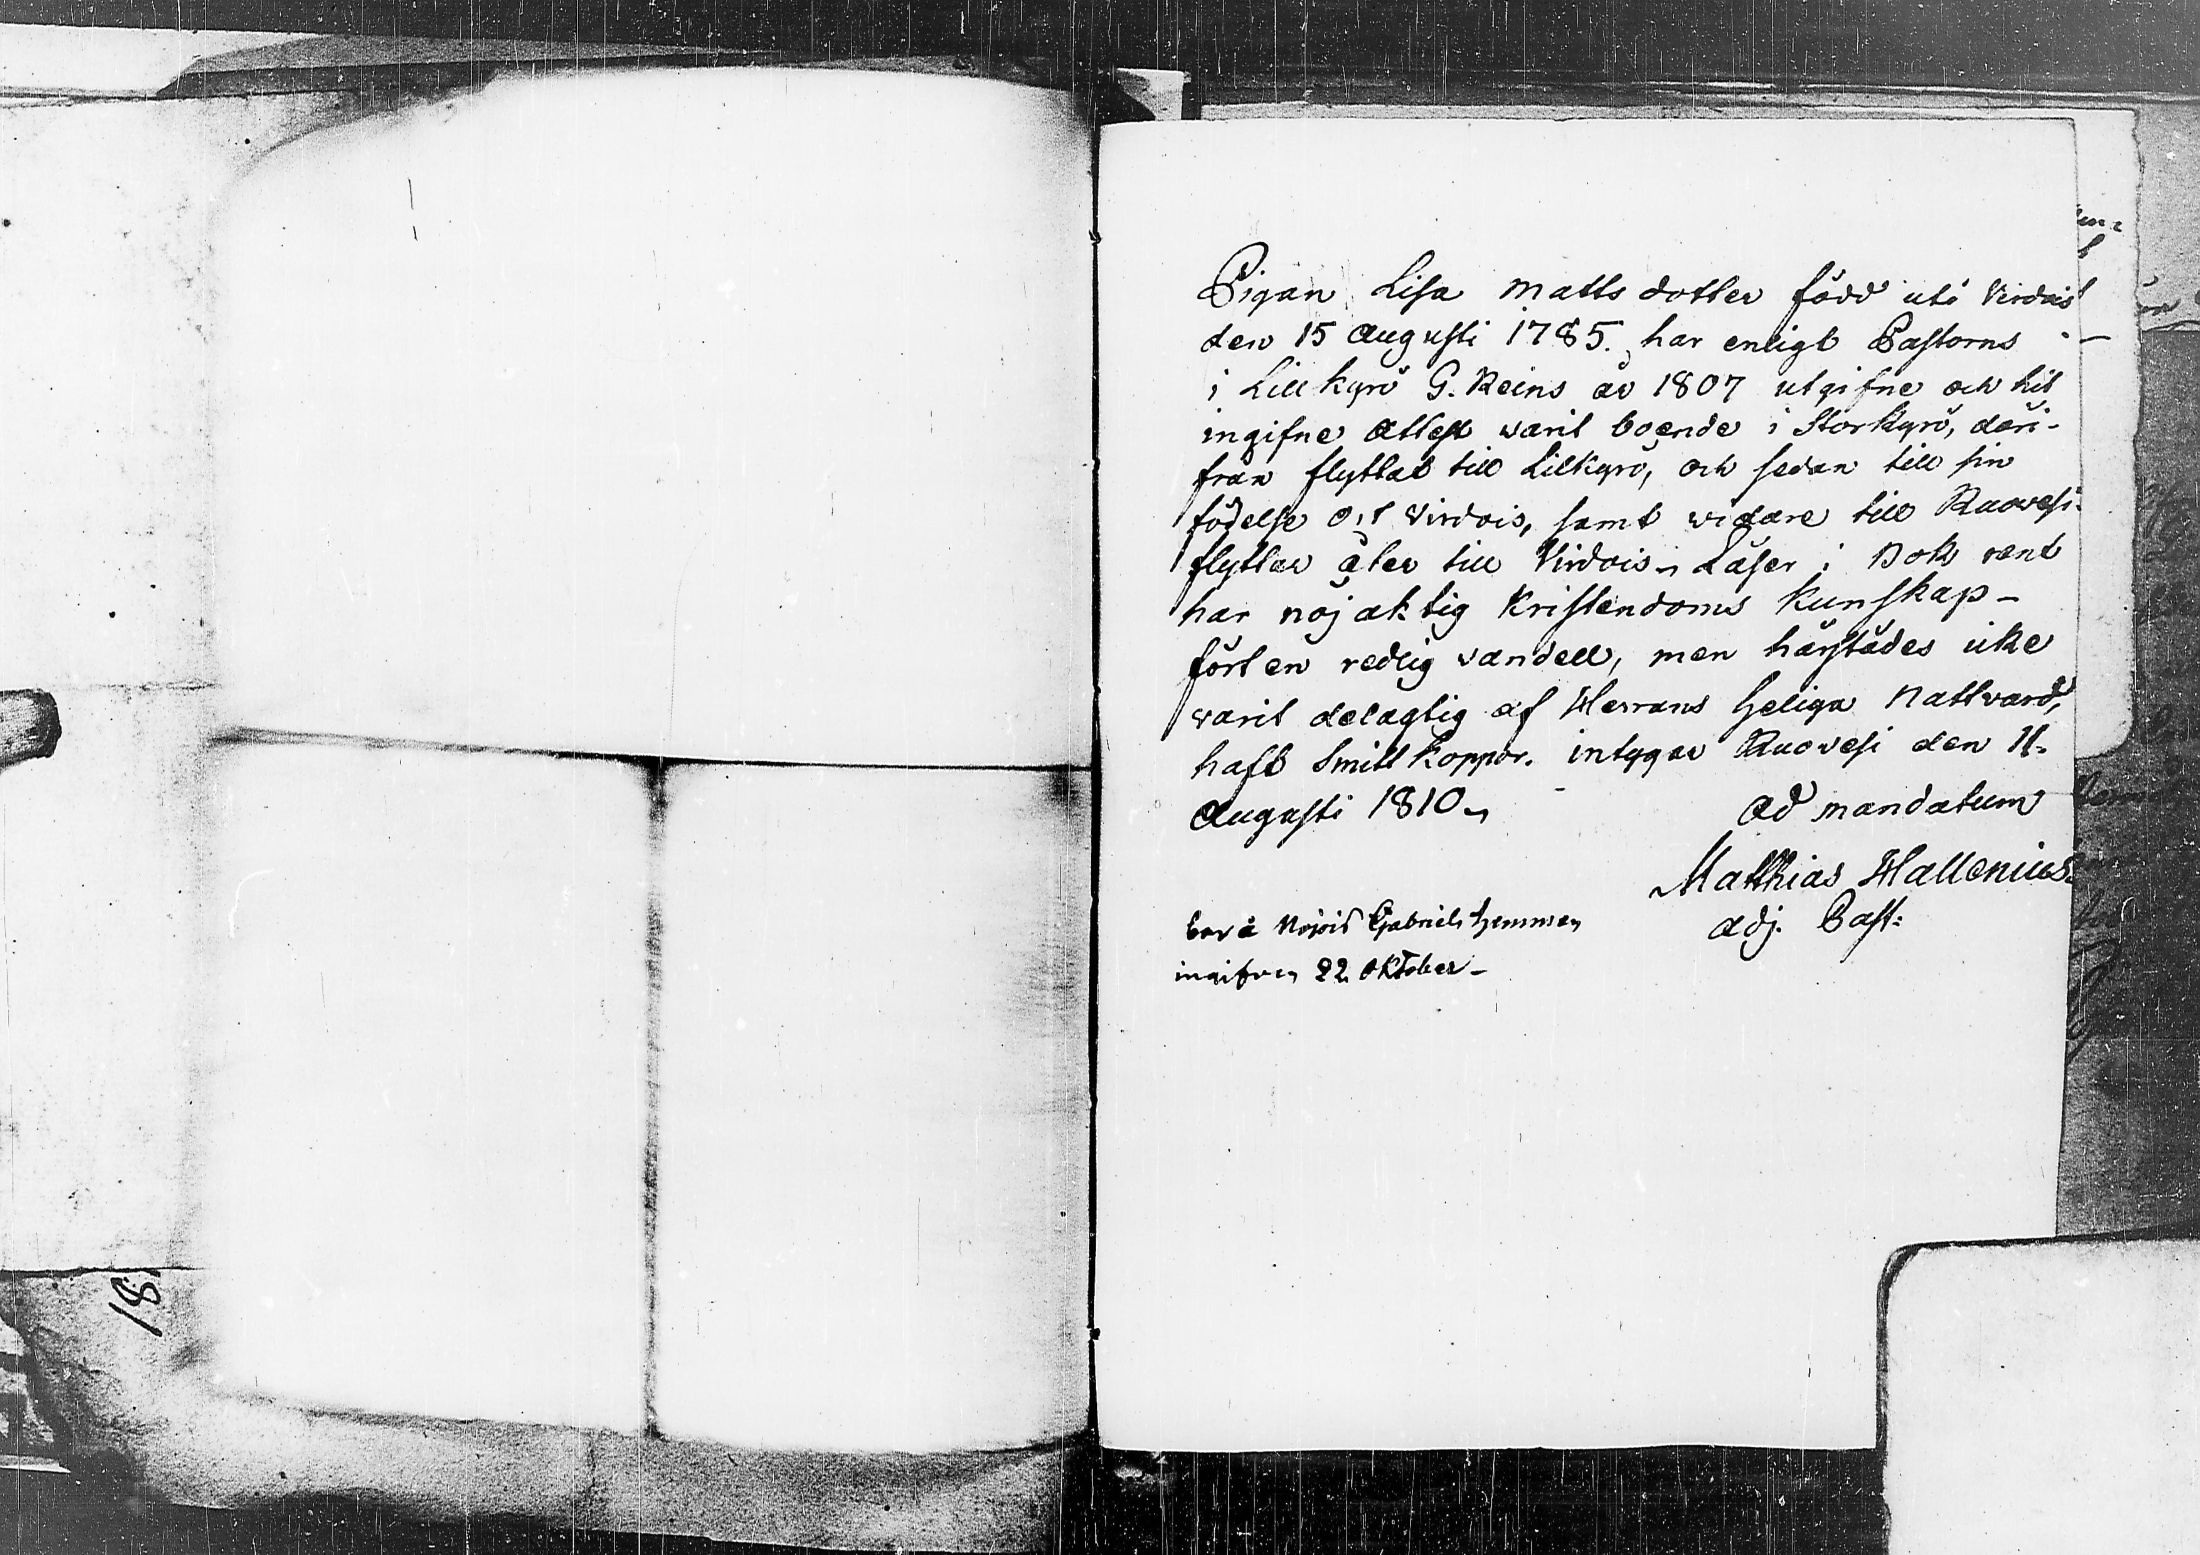 Pigan Lisa Mattsdotter född uti Virdois
den 15 Augusti 1785. har enligt Pastorns
i Lillkyro G. Reins år 1807 utgifne och hit
ingifne Attest varit boende i Storkyrö, däri-
från flyttat till Lillkyrö, och sedan till sin
födelse ort Virdois, samt vidare till Ruovesi
flyttar åter till Virdois. Läser i Bok samt
har nöjaktig Kristendoms kunskap –
fört en redlig vandell, men härstädes icke
varit delagtig af Herrans Heliga Nattvard,
haft Smittkoppor. intygar Ruovesi den 11.
Augusti 1810.
Ad mandatum
Matthias Hallenius.
adj. Past:
bor å Gabriels hemman
ingifven 22 Oktober –
18